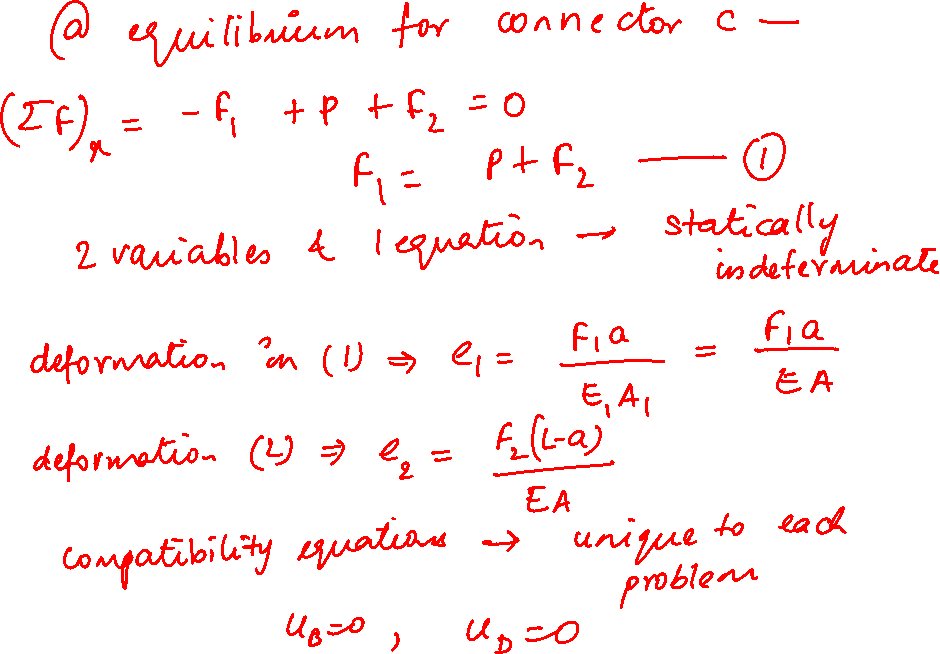 @ equilibrium for connector c —
(ΣF)ₓ = -F₁ + P + F₂ = 0
F₁ = P + F₂ —— ①
2 variables & 1 equation → statically
indeterminate
deformation in (1) ⇒ e₁ = F₁a / E₁A₁ = F₁a / EA
deformation (2) ⇒ e₂ = F₂(L-a) / EA
compatibility equations → unique to each
problem
u_B=0 , u_D=0